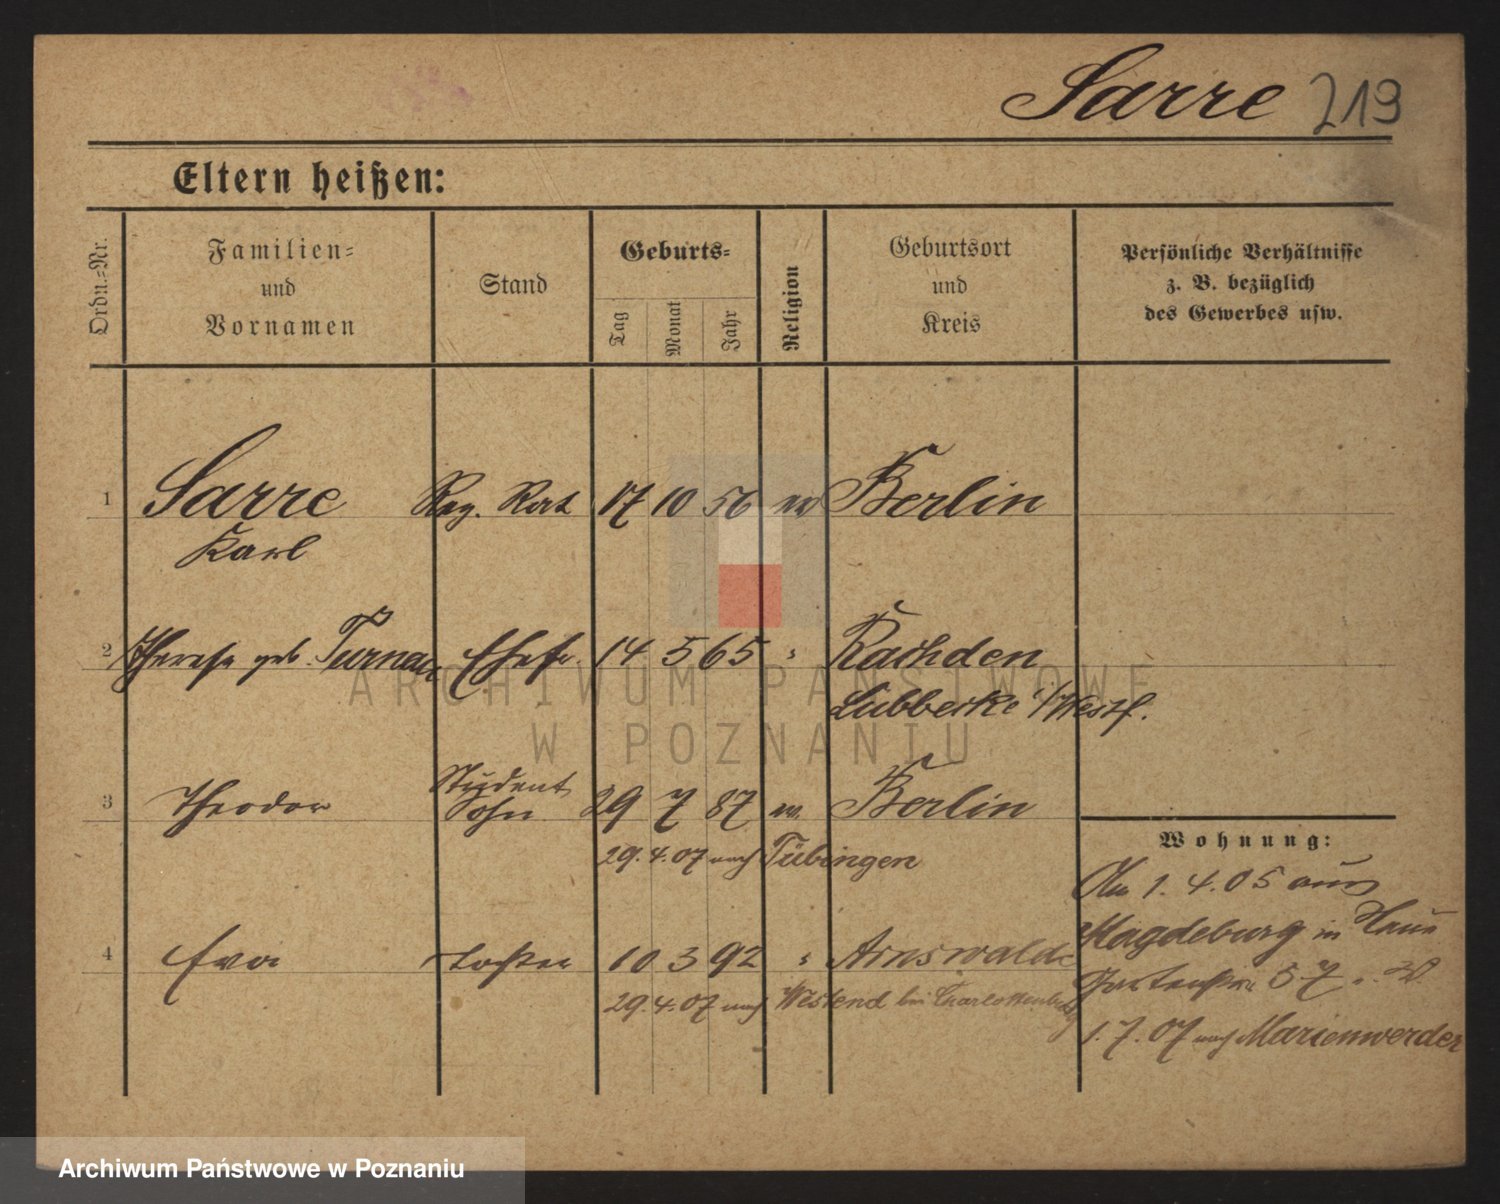 Sarre 219
Eltern heißen:
Ordn.-Nr.
Familien-
und
Vornamen
Stand
Geburts-
Tag
Monat
Jahr
Religion
Geburtsort
und
Kreis
Persönliche Verhältnisse
z. B. bezüglich
des Gewerbes usw.
1 Sarre Reg. Rat 17 10 56 ev Berlin
Karl
2 Therese geb. Ehefr. 14 5 65 " Rahden
Lübbecke i/Westf.
Student
3 Theodor Sohn 29 7 87 ev. Berlin
29.4.07 nach Tübingen
4 Eva Tochter 10 3 92 " Arnswalde
29.4.07 nach Westend bei Charlottenburg
Wohnung:
1.4.05 aus
Magdeburg in
Gartenstr. 37
1.7.07 nach Marienwerder
ARCHIWUM PAŃSTWOWE
W POZNANIU
Archiwum Państwowe w Poznaniu